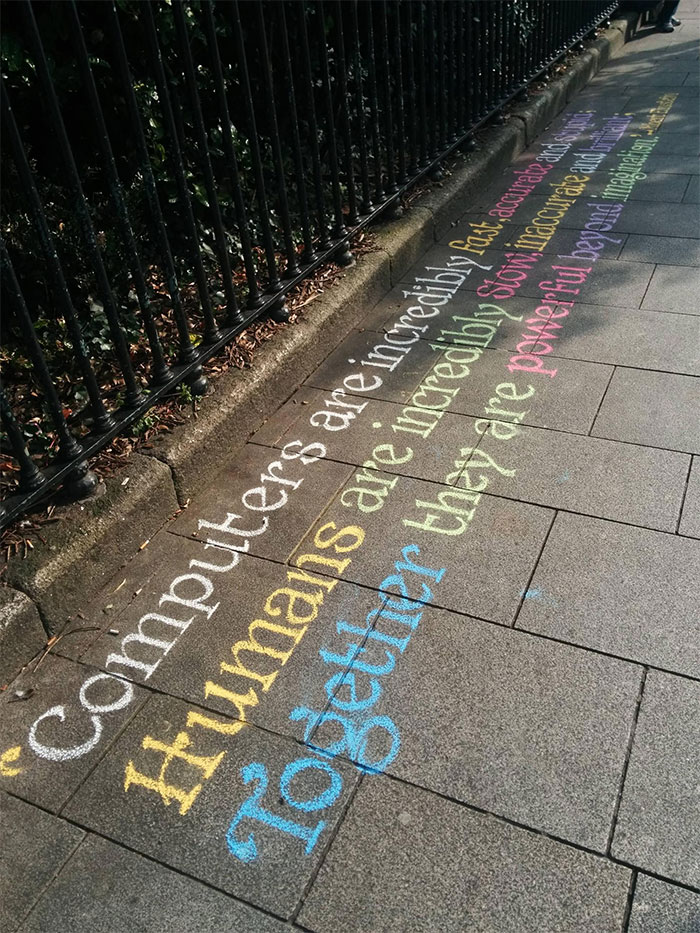 "Computers are incredibly fast, accurate and stupid;
Humans are incredibly slow, inaccurate and brilliant;
Together they are powerful beyond imagination."